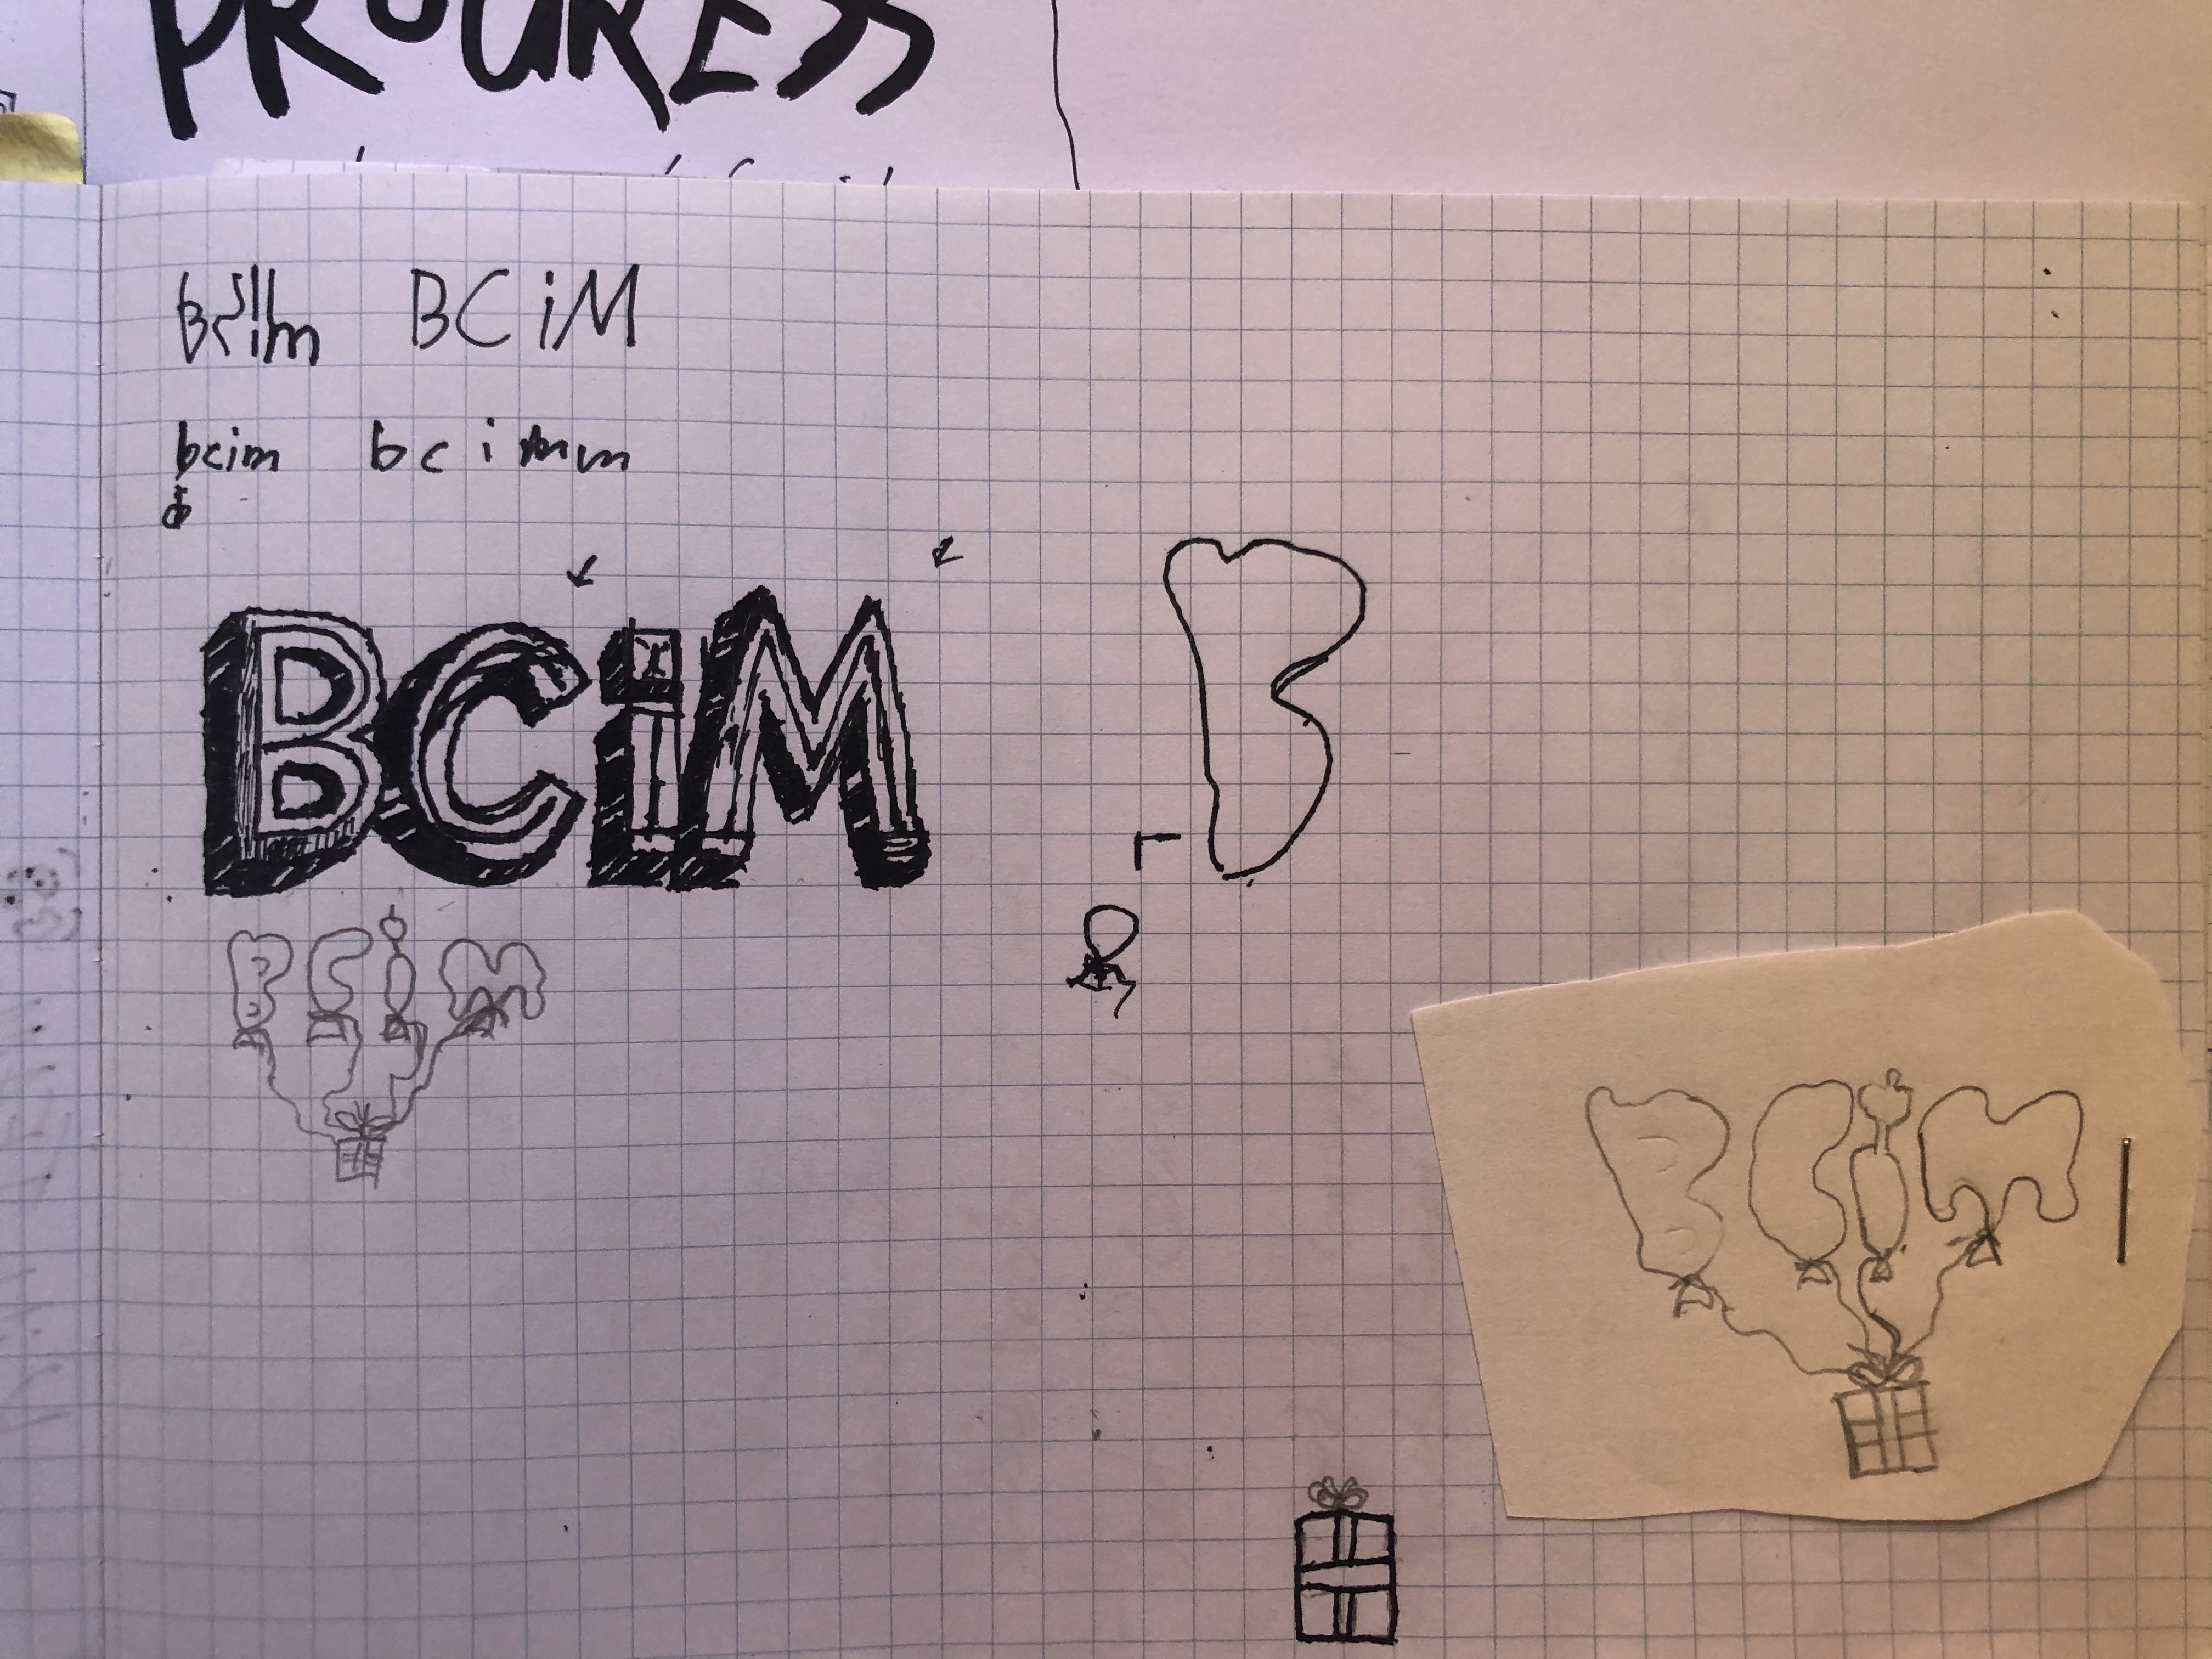 PROGRESS
BCiM BCiM
bcim bcim m
BCiM B
BCiM
BCiM